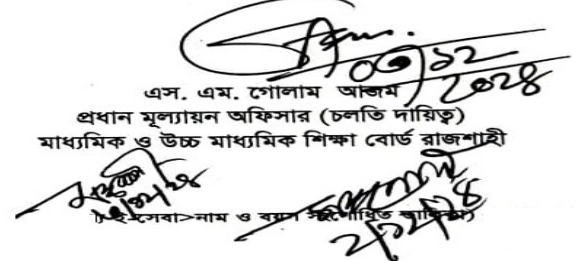 ০৩/১২/২০২৪
এস. এম. গোলাম আজম
প্রধান মূল্যায়ন অফিসার (চলতি দায়িত্ব)
মাধ্যমিক ও উচ্চ মাধ্যমিক শিক্ষা বোর্ড রাজশাহী
২/১২/২৪
২/১২/২৪
সেবা>নাম ও বয়স সংশোধিত